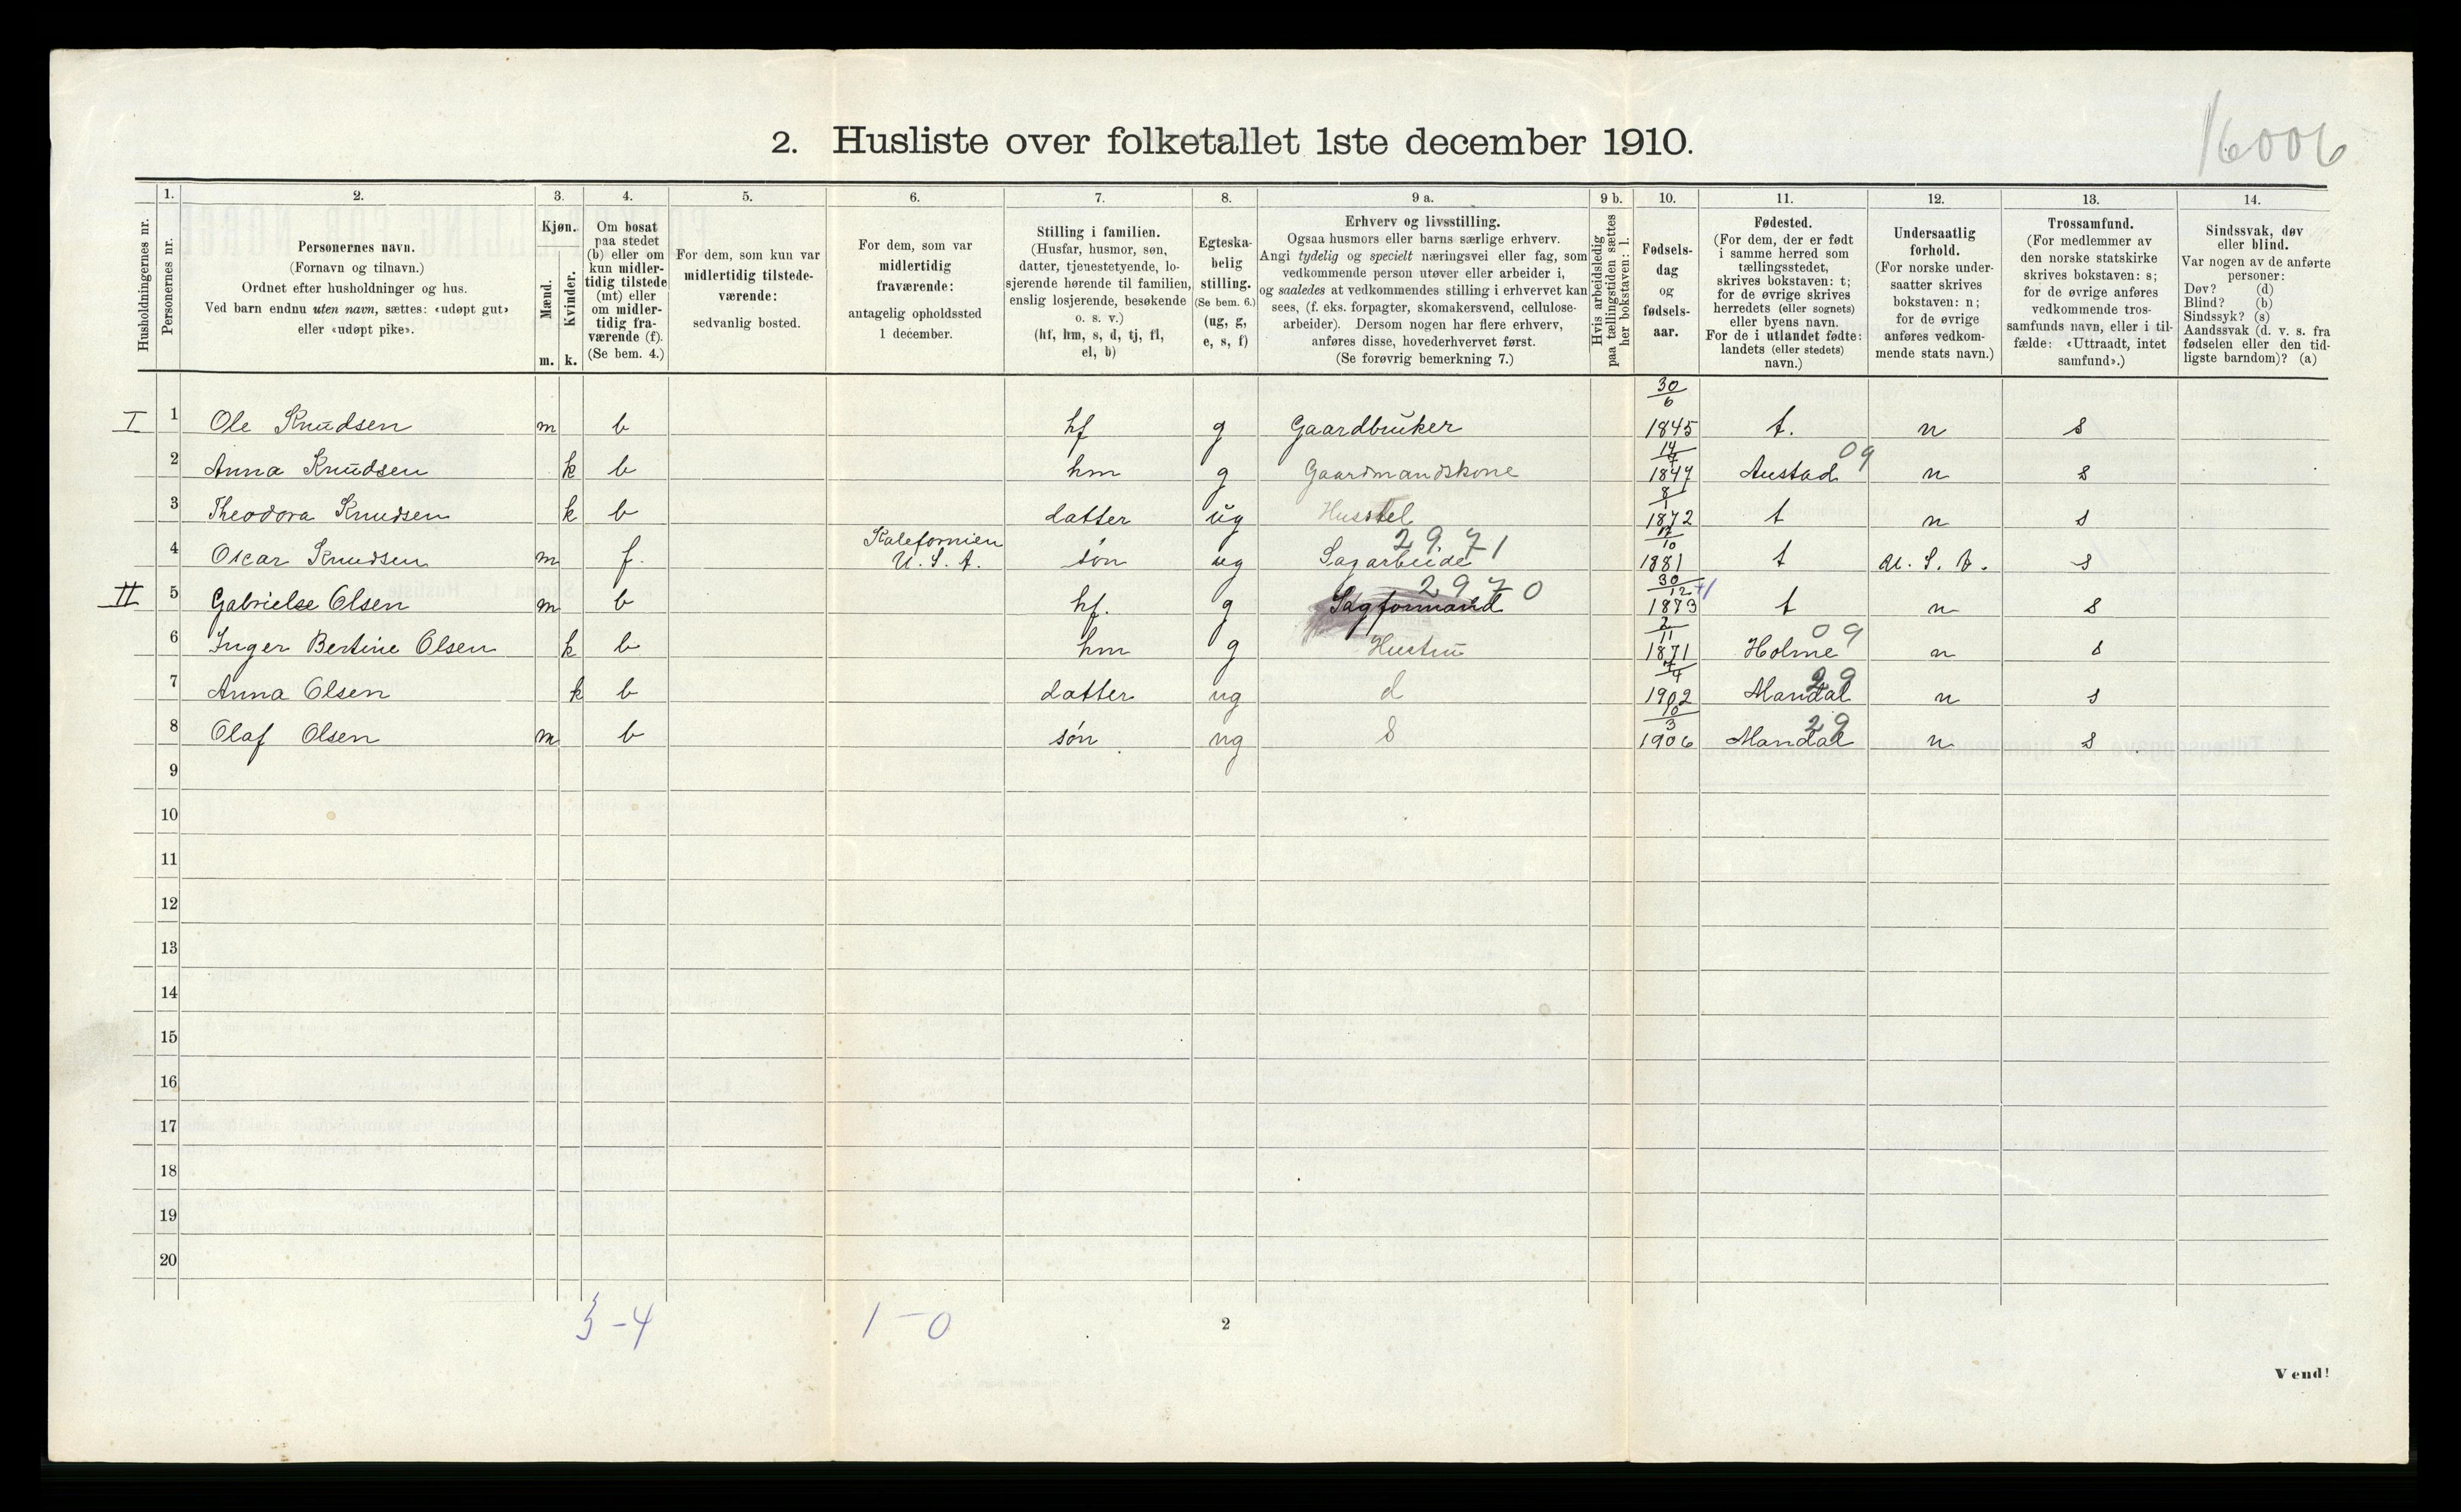 16006
2. Husliste over folketallet 1ste december 1910.
Husholdningernes nr.
1.
Personernes nr.
2.
Personernes navn.
(Fornavn og tilnavn.)
Ordnet efter husholdninger og hus.
Ved barn endnu uten navn, sættes: «udøpt gut»
eller «udøpt pike».
3.
Kjøn.
Mænd.
Kvinder.
m. k.
4.
Om bosat
paa stedet
(b) eller om
kun midler-
tidig tilstede
(mt) eller
om midler-
tidig fra-
værende (f).
(Se bem. 4.)
5.
For dem, som kun var
midlertidig tilstede-
værende:
sedvanlig bosted.
6.
For dem, som var
midlertidig
fraværende:
antagelig opholdssted
1 december.
7.
Stilling i familien.
(Husfar, husmor, søn,
datter, tjenestetyende, lo-
sjerende hørende til familien,
enslig losjerende, besøkende
o. s. v.)
(hf, hm, s, d, tj, fl,
el, b)
8.
Egteska-
belig
stilling.
(Se bem. 6.)
(ug, g,
e, s, f)
9 a.
Erhverv og livsstilling.
Ogsaa husmors eller barns særlige erhverv.
Angi tydelig og specielt næringsvei eller fag, som
vedkommende person utøver eller arbeider i,
og saaledes at vedkommendes stilling i erhvervet kan
sees, (f. eks. forpagter, skomakersvend, cellulose-
arbeider). Dersom nogen har flere erhverv,
anføres disse, hovederhvervet først.
(Se forøvrig bemerkning 7.)
9 b.
Hvis arbeidsledig
paa tællingstiden sættes
her bokstaven: l.
10.
Fødsels-
dag
og
fødsels-
aar.
11.
Fødested.
(For dem, der er født
i samme herred som
tællingsstedet,
skrives bokstaven: t;
for de øvrige skrives
herredets (eller sognets)
eller byens navn.
For de i utlandet fødte:
landets (eller stedets)
navn.)
12.
Undersaatlig
forhold.
(For norske under-
saatter skrives
bokstaven: n;
for de øvrige
anføres vedkom-
mende stats navn.)
13.
Trossamfund.
(For medlemmer av
den norske statskirke
skrives bokstaven: s;
for de øvrige anføres
vedkommende tros-
samfunds navn, eller i til-
fælde: «Uttraadt, intet
samfund».)
14.
Sindssvak, døv
eller blind.
Var nogen av de anførte
personer:
Døv? (d)
Blind? (b)
Sindssyk? (s)
Aandssvak (d. v. s. fra
fødselen eller den tid-
ligste barndom)? (a)
I 1 Ole Knudsen m b hf g Gaardbruker 30/6 1845 t. n s
2 Anna Knudsen k b hm g Gaardmandskone 14/7 1847 Austad 09 n s
3 Theodora Knudsen k b datter ug Husstel 8/1 1872 t n s
4 Oscar Knudsen m f. Kalefornien U. S. A. søn ug Sagarbeide 2971 1881 t U. S. A. s
II 5 Gabrielse Olsen m b hf. g Sagformand 2970 30/12 1873 +1 t n s
6 Inger Bertine Olsen k b hm g Hustru 2/11 1871 Holme 09 n s
7 Anna Olsen k b datter ug d 7/4 1902 Mandal 29 n s
8 Olaf Olsen m b søn ug s 10/3 1906 Mandal 29 n s
9
10
11
12
13
14
15
16
17
18
19
20
3-4 1-0
2
Vend!